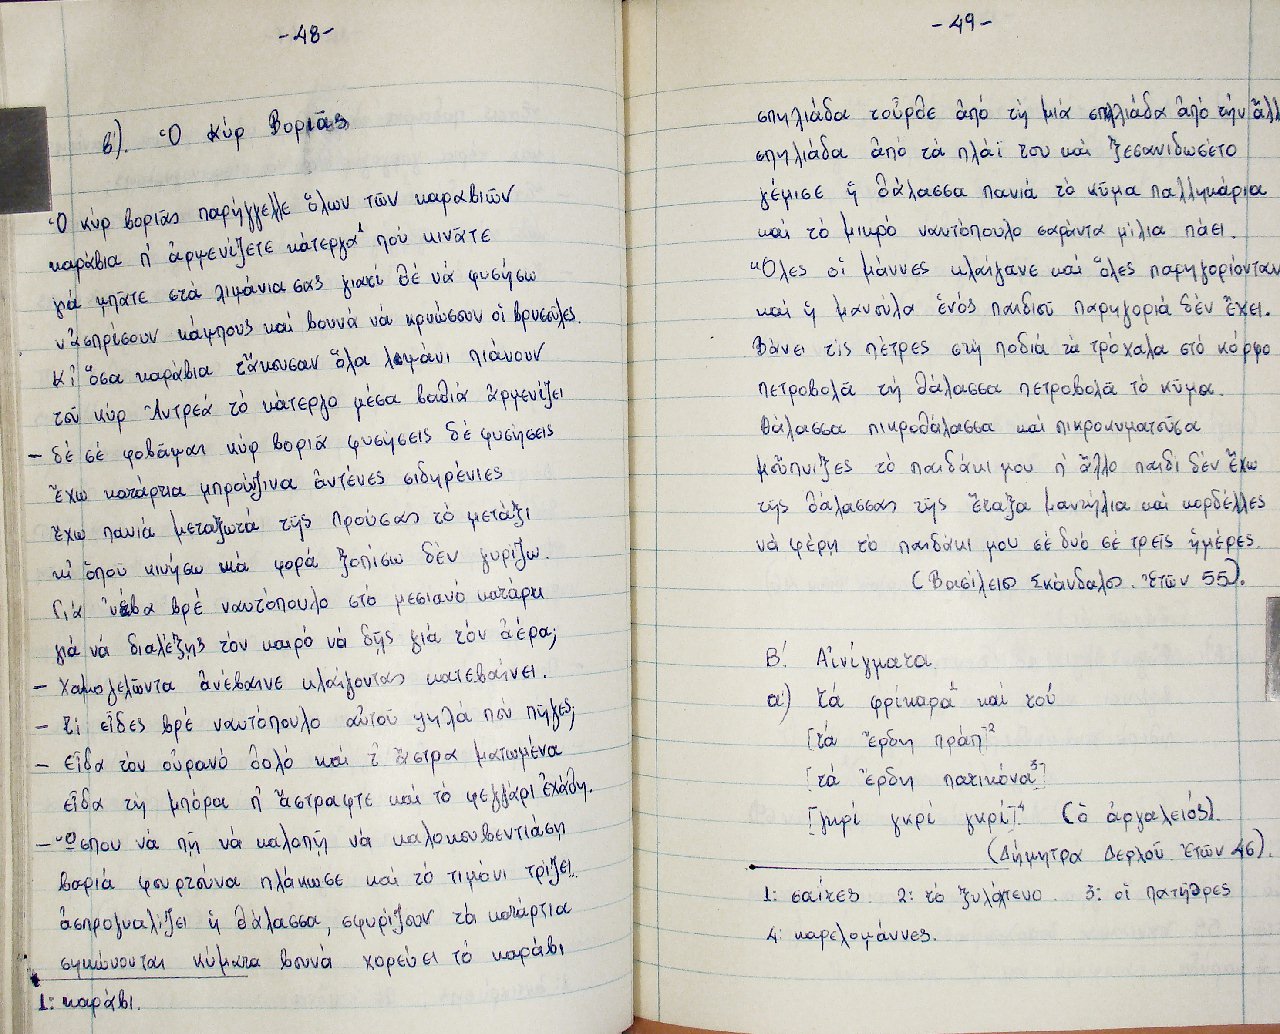 -48-
β). Ὁ κύρ Βοριᾶς
Ὁ κύρ βοριᾶς παρήγγελλε ὅλων τῶν καραβιῶν
καράβια π' ἀρμενίζετε κάτεργα¹ πού κινᾶτε
γιά μπᾶτε στά λιμάνια σας γιατί θέ νά φυσήσω
ν' ἀσπρίσουν κάμπους καί βουνά νά κρυώσουν οἱ βρυσοῦλες.
Κι' ὅσα καράβια τἄκουσαν ὅλα λιμάνι πιάνουν
τοῦ κύρ Ἀντρέα τό κάτεργο μέσα βαθιά ἀρμενίζει
- δέ σέ φοβᾶμαι κύρ βοριᾶ φυσήσεις δέ φυσήσεις
ἔχω κατάρτια μπρούτζινα ἀντένες σιδηρένιες
ἔχω πανιά μεταξωτά τῆς Προύσας τό μετάξι
κι' ὅπου κινήσω μιά φορά ξοπίσω δέν γυρίζω.
Γιά ἀνέβα βρέ ναυτόπουλο στό μεσιανό κατάρτι
γιά νά διαλέξῃς τόν καιρό νά δῇς γιά τόν ἀέρα;
- Χαμογελῶντα ἀνέβαινε κλαίγοντας κατεβαίνει.
- Τί εἶδες βρέ ναυτόπουλο αὐτοῦ ψηλά πού πῆγες;
- Εἶδα τόν οὐρανό θολό καί τ' ἄστρα ματωμένα
εἶδα τή μπόρα π' ἄστραφτε καί τό φεγγάρι ἐχάθη.
- Ὥσπου νά πῇ νά καλοπῇ νά καλοκουβεντιάσῃ
βαριά φουρτούνα πλάκωσε καί τό τιμόνι τρίζει.
ἀσπρογυαλίζει ἡ θάλασσα, σφυρίζουν τά κατάρτια
σηκώνονται κύματα βουνά χορεύει τό καράβι
1: καράβι.
-49-
σπηλιάδα τοὖρθε ἀπό τή μιά σπηλιάδα ἀπό τήν ἄλλ
σπηλιάδα ἀπό τά πλάϊ του καί ξεσανιδωσέτο
γέμισε ἡ θάλασσα πανιά τό κῦμα παλληκάρια
καί τό μικρό ναυτόπουλο σαράντα μίλια πάει.
Ὅλες οἱ μάννες κλαίγανε καί ὅλες παρηγορίονταν
καί ἡ μανούλα ἑνός παιδιοῦ παρηγοριά δέν ἔχει.
Βάνει τίς πέτρες στή ποδιά τά τρόχαλα στό κόρφο
πετροβολᾶ τή θάλασσα πετροβολᾶ τό κῦμα.
Θάλασσα πικροθάλασσα καί πικροκυματοῦσα
μοὔπνιξες τό παιδάκι μου π' ἄλλο παιδί δέν ἔχω
τῆς θάλασσας τῆς ἔταξα μαντήλια καί κορδέλλες
νά φέρῃ τό παιδάκι μου σέ δυό σέ τρεῖς ἡμέρες.
(Βασίλειος Σκάνδαλος. Ἐτῶν 55).
Β'. Αἰνίγματα
α') Τά φρίκαρα¹ καί τού
[τά ἔρδη πράπ]²
[τά ἔρδη πατικόνα³]
[γκρί γκρί γκρί]⁴ (ὁ ἀργαλειός).
(Δήμητρα Δερλοῦ Ἐτῶν 46).
1: σαΐτες. 2: τό ξυλόχτενο. 3: οἱ πατήθρες
4: καρελομάννες.